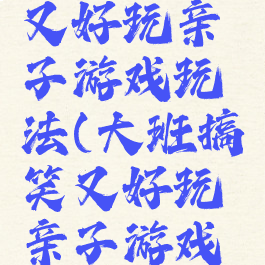 又好玩亲
子游戏玩
法(大班搞
笑又好玩
亲子游戏